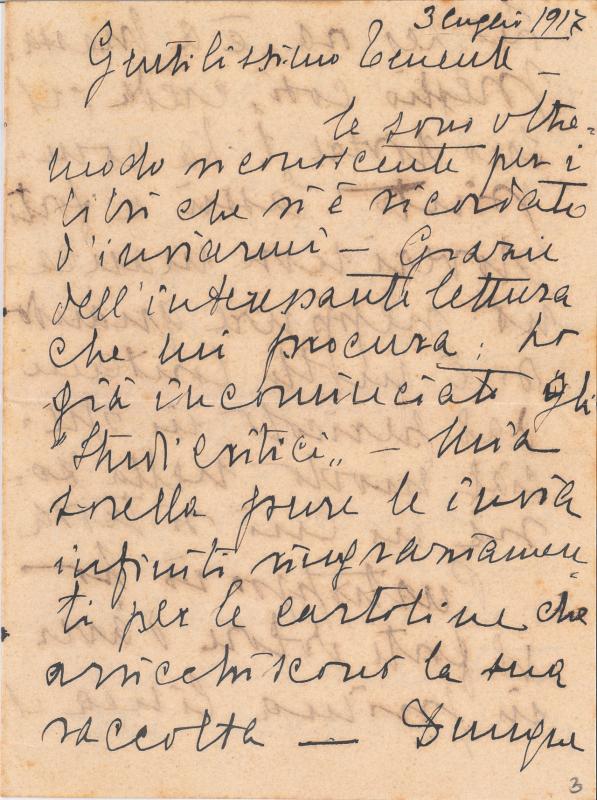 3 luglio 1917
Gentilissimo Tenente —
le sono oltre=
modo riconoscente per i
libri che si è ricordato
d'inviarmi — Grazie
dell'interessante lettura
che mi procura; ho
già incominciato gli
"Studi critici„ — Mia
sorella pure le invia
infiniti ringraziamen=
ti per le cartoline che
arricchiscono la sua
raccolta — Dunque
3